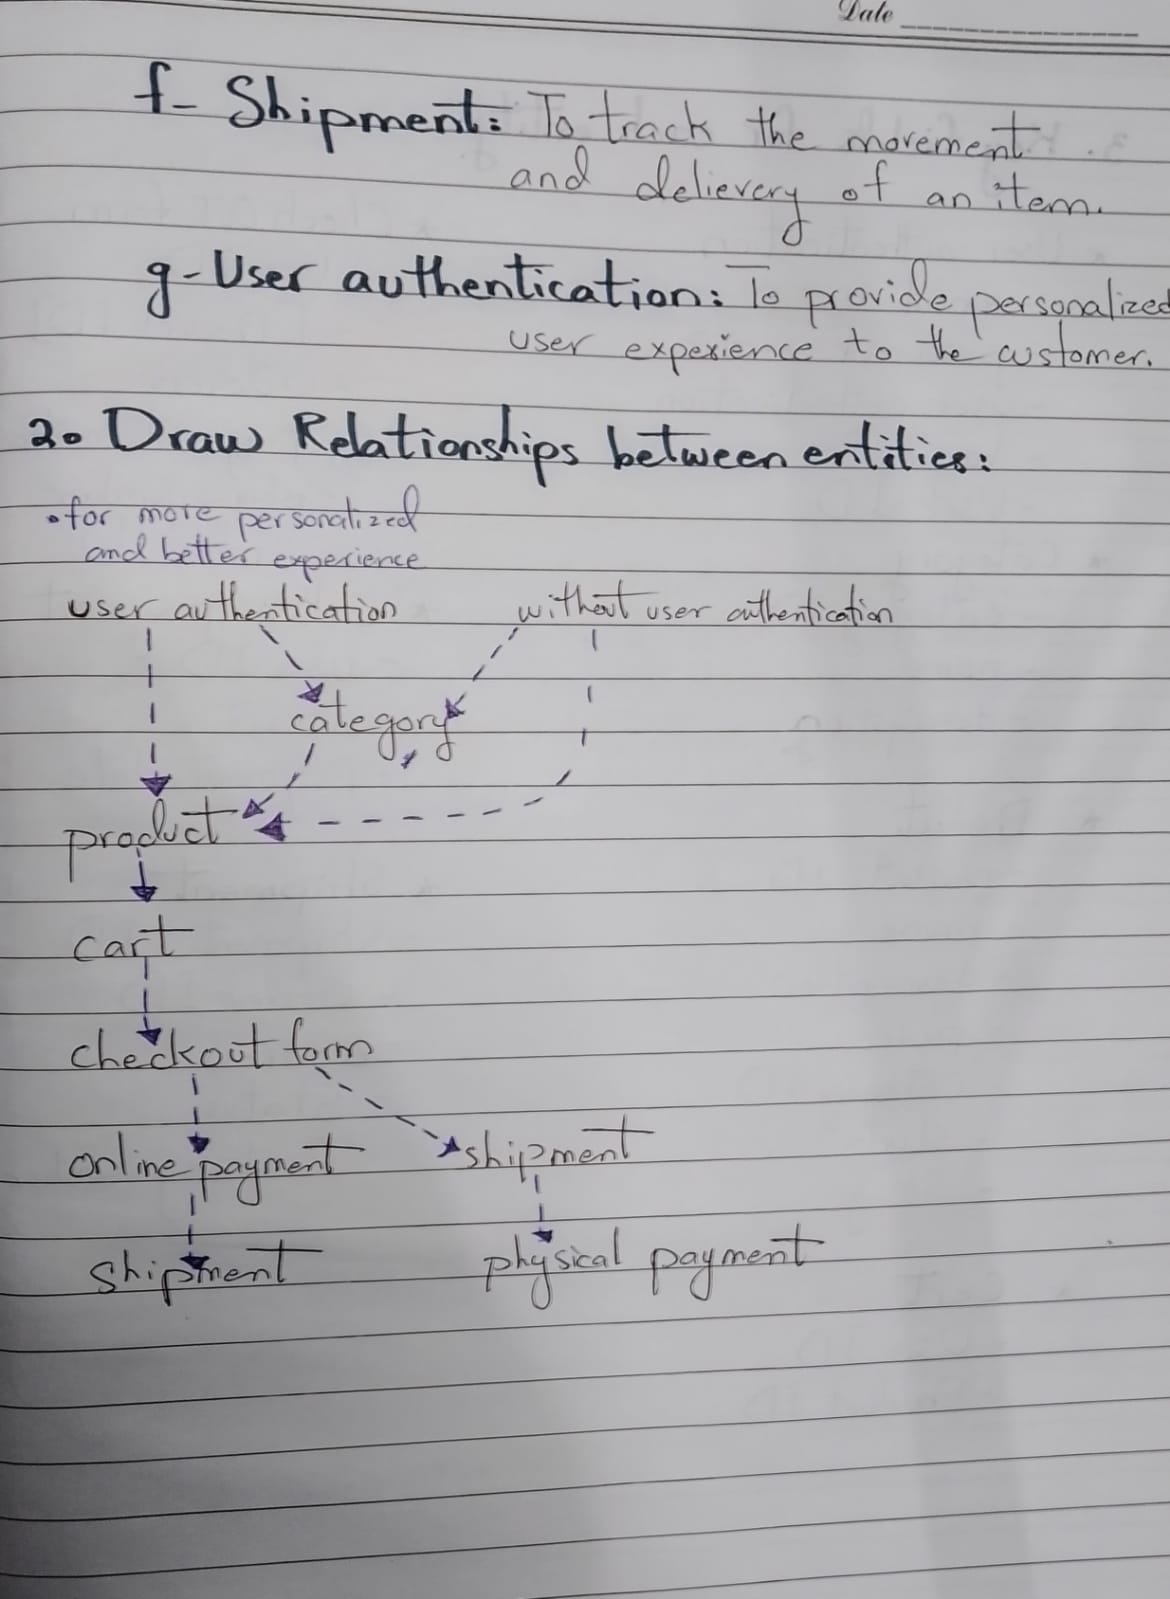 Date
f- Shipment: To track the movement
and delievery of an item.
g- User authentication: To provide personalized
user experience to the customer.
2. Draw Relationships between entities:
• for more personalized
and better experience
user authentication without user authentication
category
product
cart
checkout form
online payment shipment
shipment physical payment